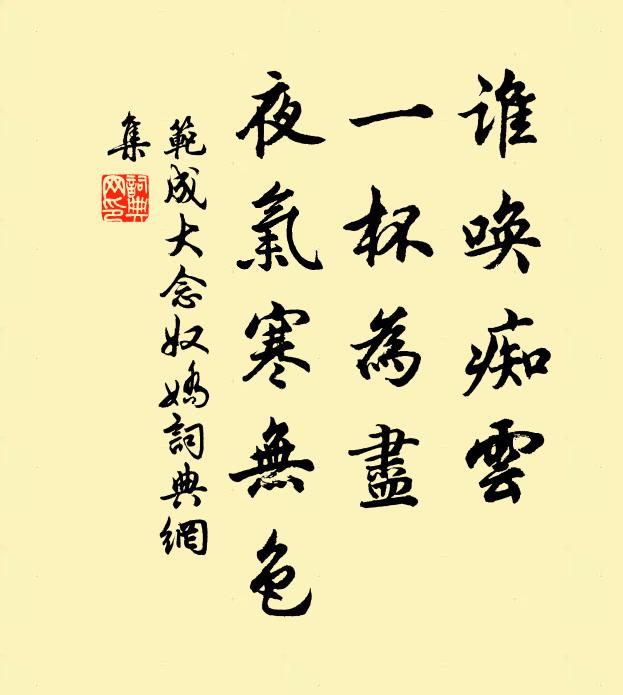 谁唤痴雲
一杯為盡
夜氣寒無色
範成大念奴嬌詞典網
集
詞典
网印